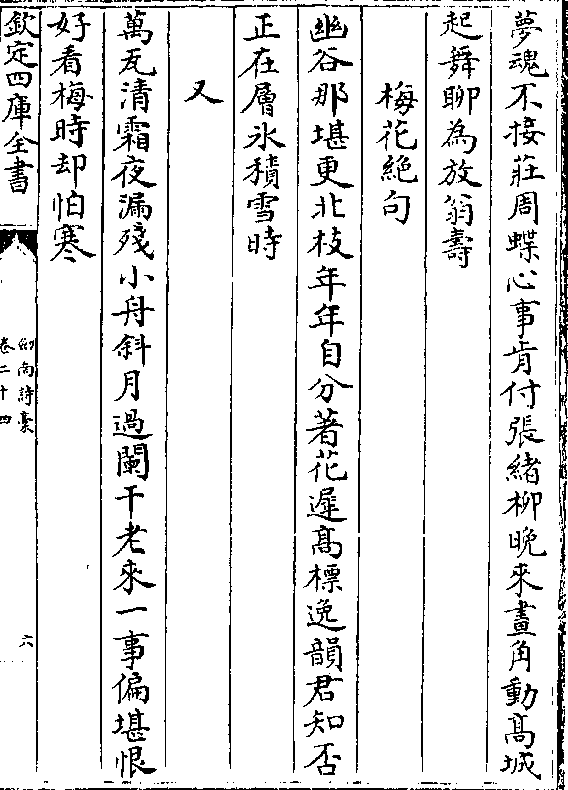 夢魂不接莊周蝶心事肯付張緒柳晩來畫角動髙城
起舞聊為放翁壽
梅花絶句
幽谷那堪更北枝年年自分著花遲髙標逸韻君知否
正在層氷積雪時
又
萬瓦清霜夜漏殘小舟斜月過闌干老來一事偏堪恨
好看梅時却怕寒
欽定四庫全書
劒南詩藁
卷二十四
六